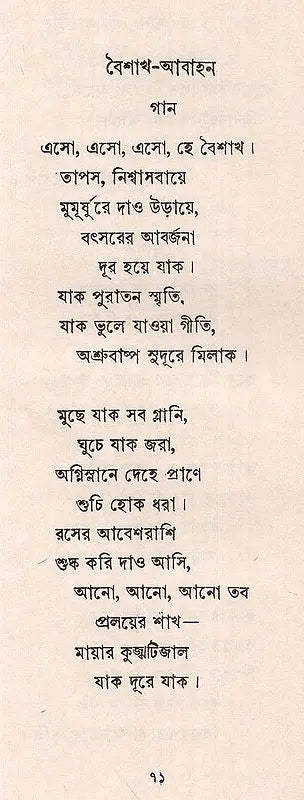 বৈশাখ-আবাহন
গান
এসো, এসো, এসো, হে বৈশাখ।
তাপস, নিশ্বাসবায়ে
মুমূর্ষুরে দাও উড়ায়ে,
বৎসরের আবর্জনা
দূর হয়ে যাক।
যাক পুরাতন স্মৃতি,
যাক ভুলে যাওয়া গীতি,
অশ্রুবাষ্প সুদূরে মিলাক।
মুছে যাক সব গ্লানি,
ঘুচে যাক জরা,
অগ্নিস্নানে দেহে প্রাণে
শুচি হোক ধরা।
রসের আবেশরাশি
শুষ্ক করি দাও আসি,
আনো, আনো, আনো তব
প্রলয়ের শাঁখ—
মায়ার কুজ্ঝটিজাল
যাক দূরে যাক।
৭১